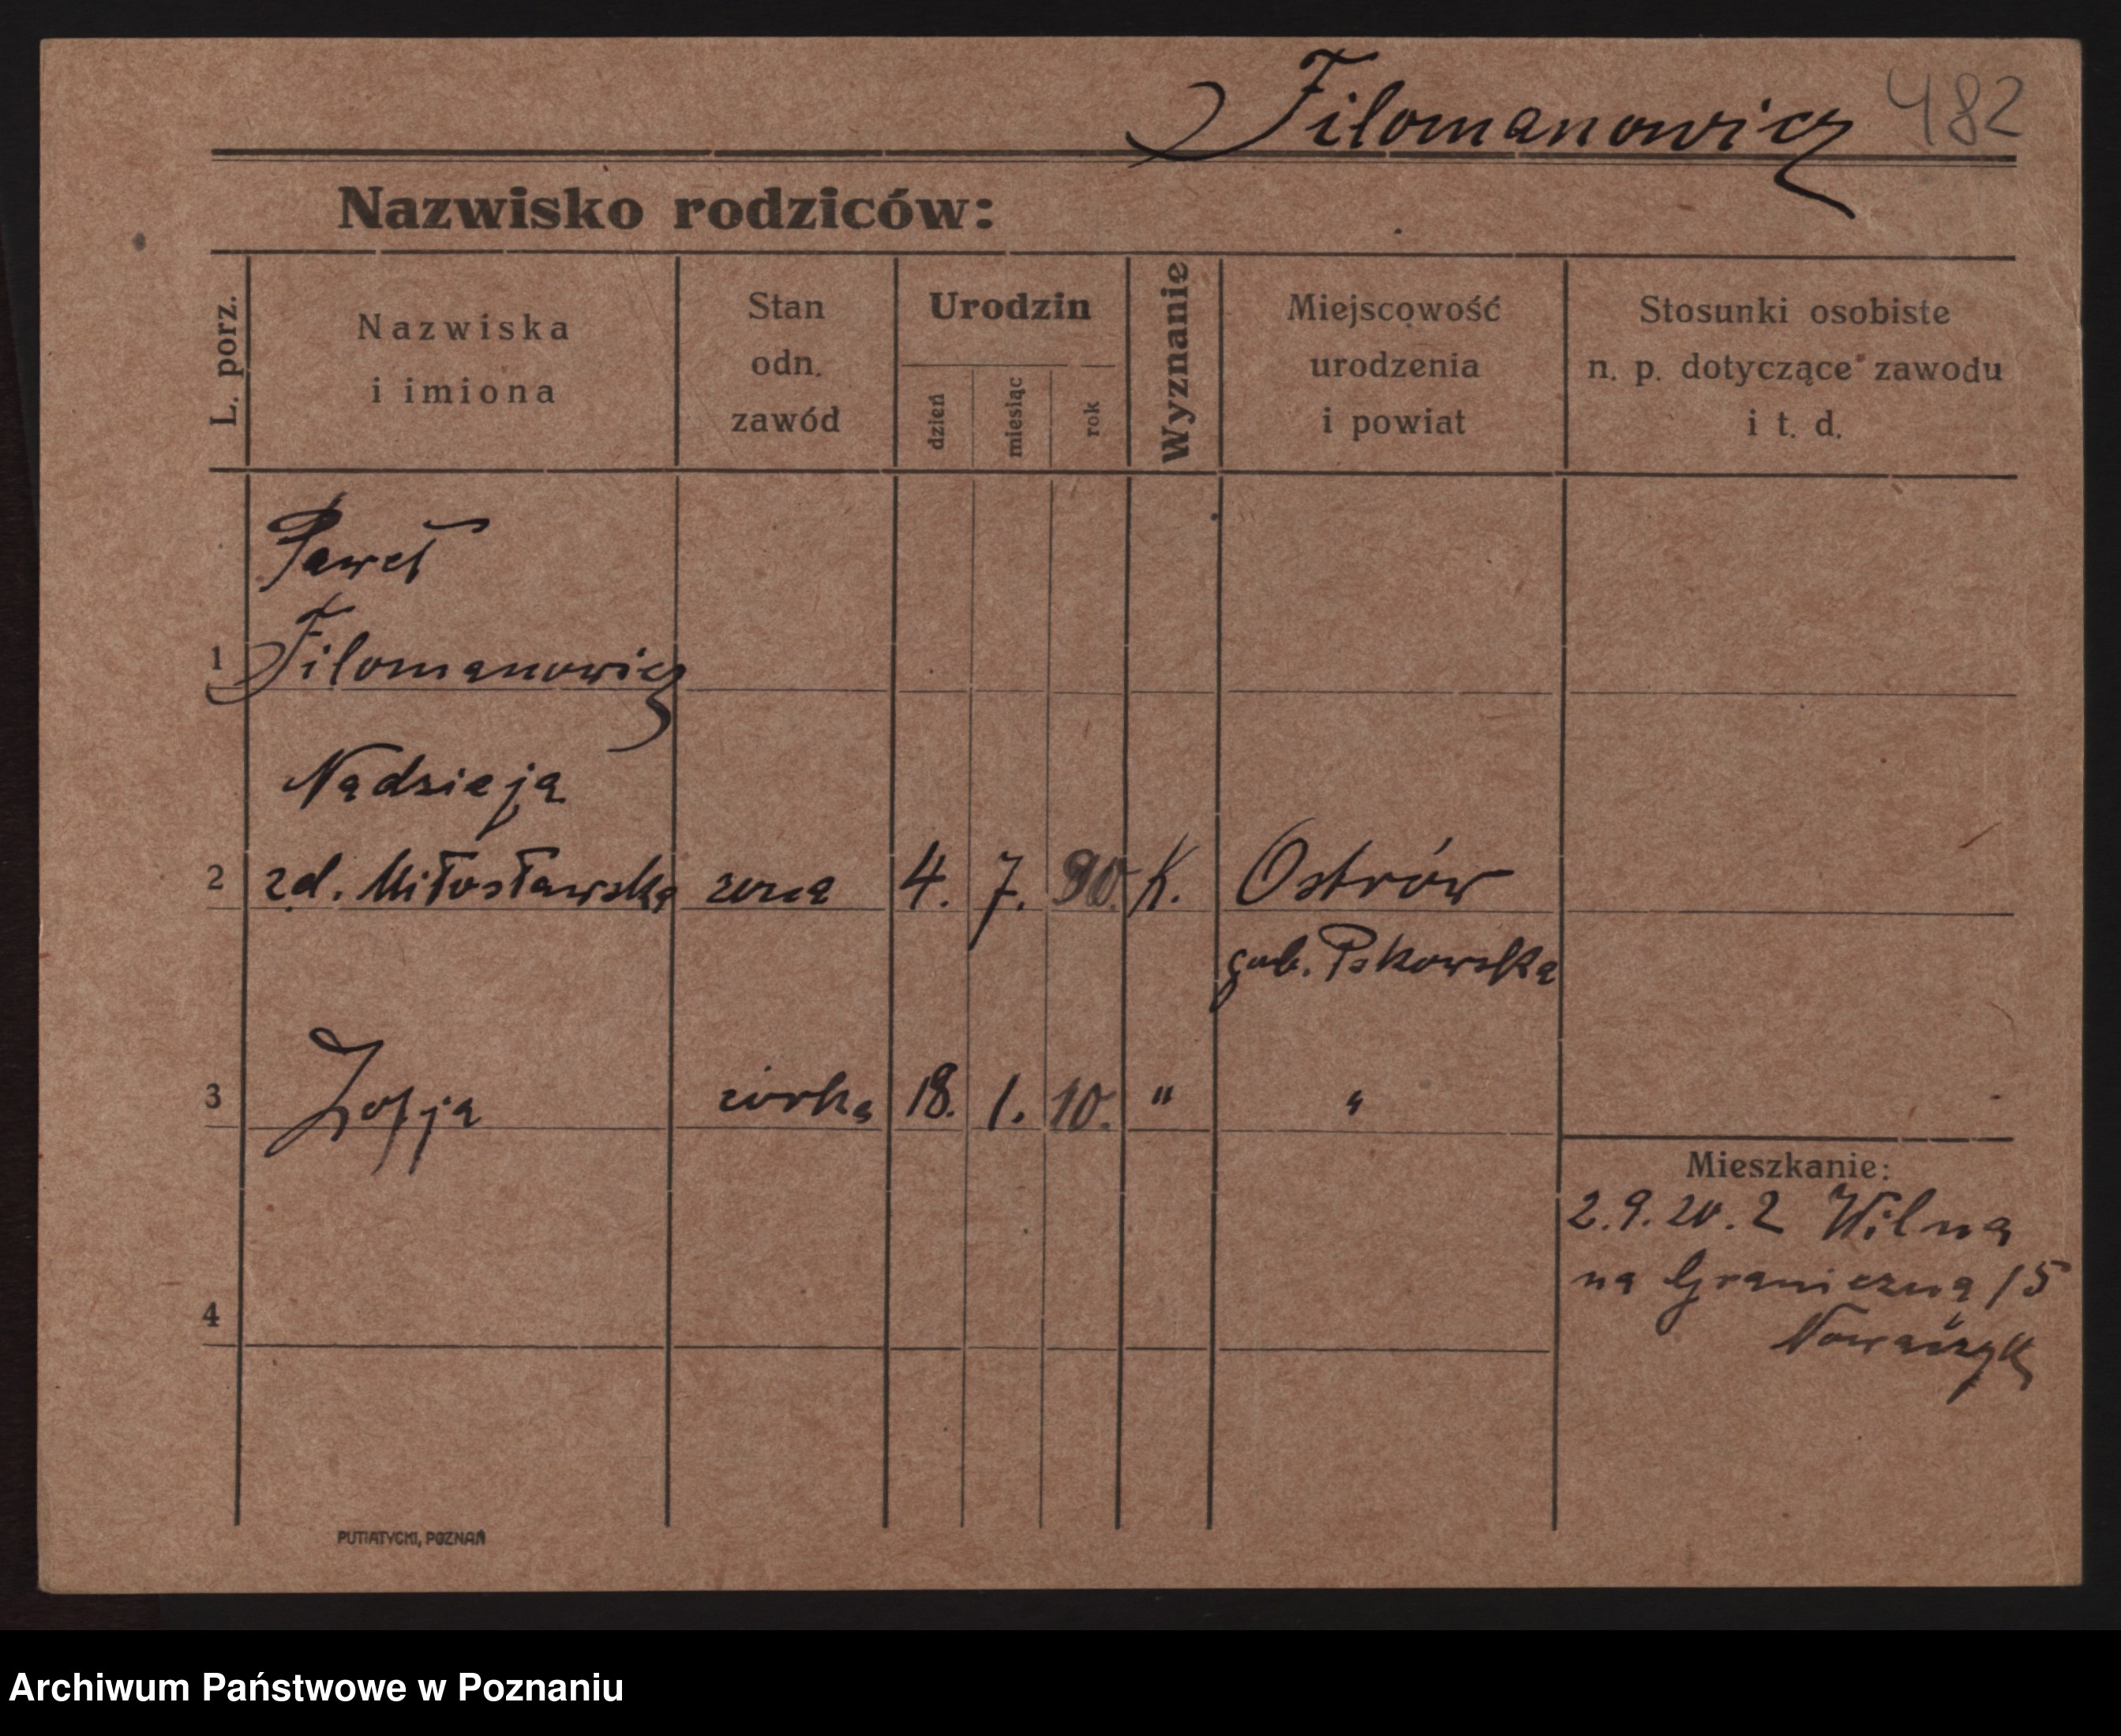 Filomanowicz 482
Nazwisko rodziców:
L. porz.
Nazwiska
i imiona
Stan
odn.
zawód
Urodzin
dzień
miesiąc
rok
Wyznanie
Miejscowość
urodzenia
i powiat
Stosunki osobiste
n. p. dotyczące zawodu
i t. d.
Paweł
1 Filomanowicz
Nadzieja
2 zd. Miłosławska żona 4. 7. 90. K. Ostrów
gub. Pskowska
3 Zofja córka 18. 1. 10. " "
Mieszkanie:
2.9.20. z Wilna
na Graniczną 15
Nowaczyk
4
PUTIATYCKI, POZNAŃ
Archiwum Państwowe w Poznaniu